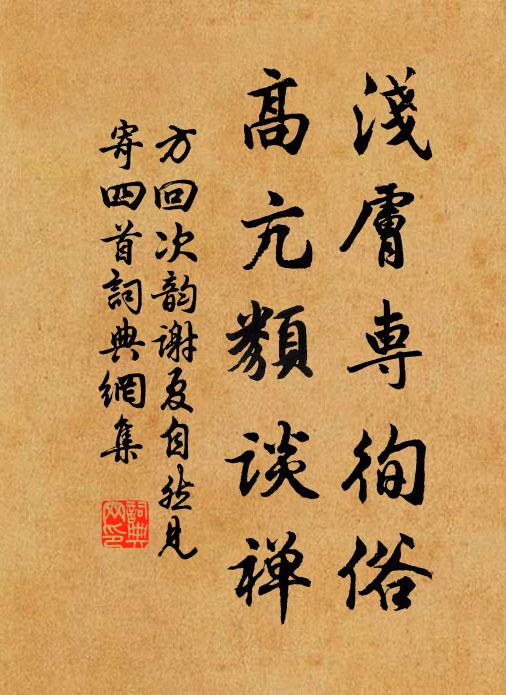 淺膚專徇俗
高亢類談禅
方回次韵谢夏自然見
寄四首詞典網集
詞典网印